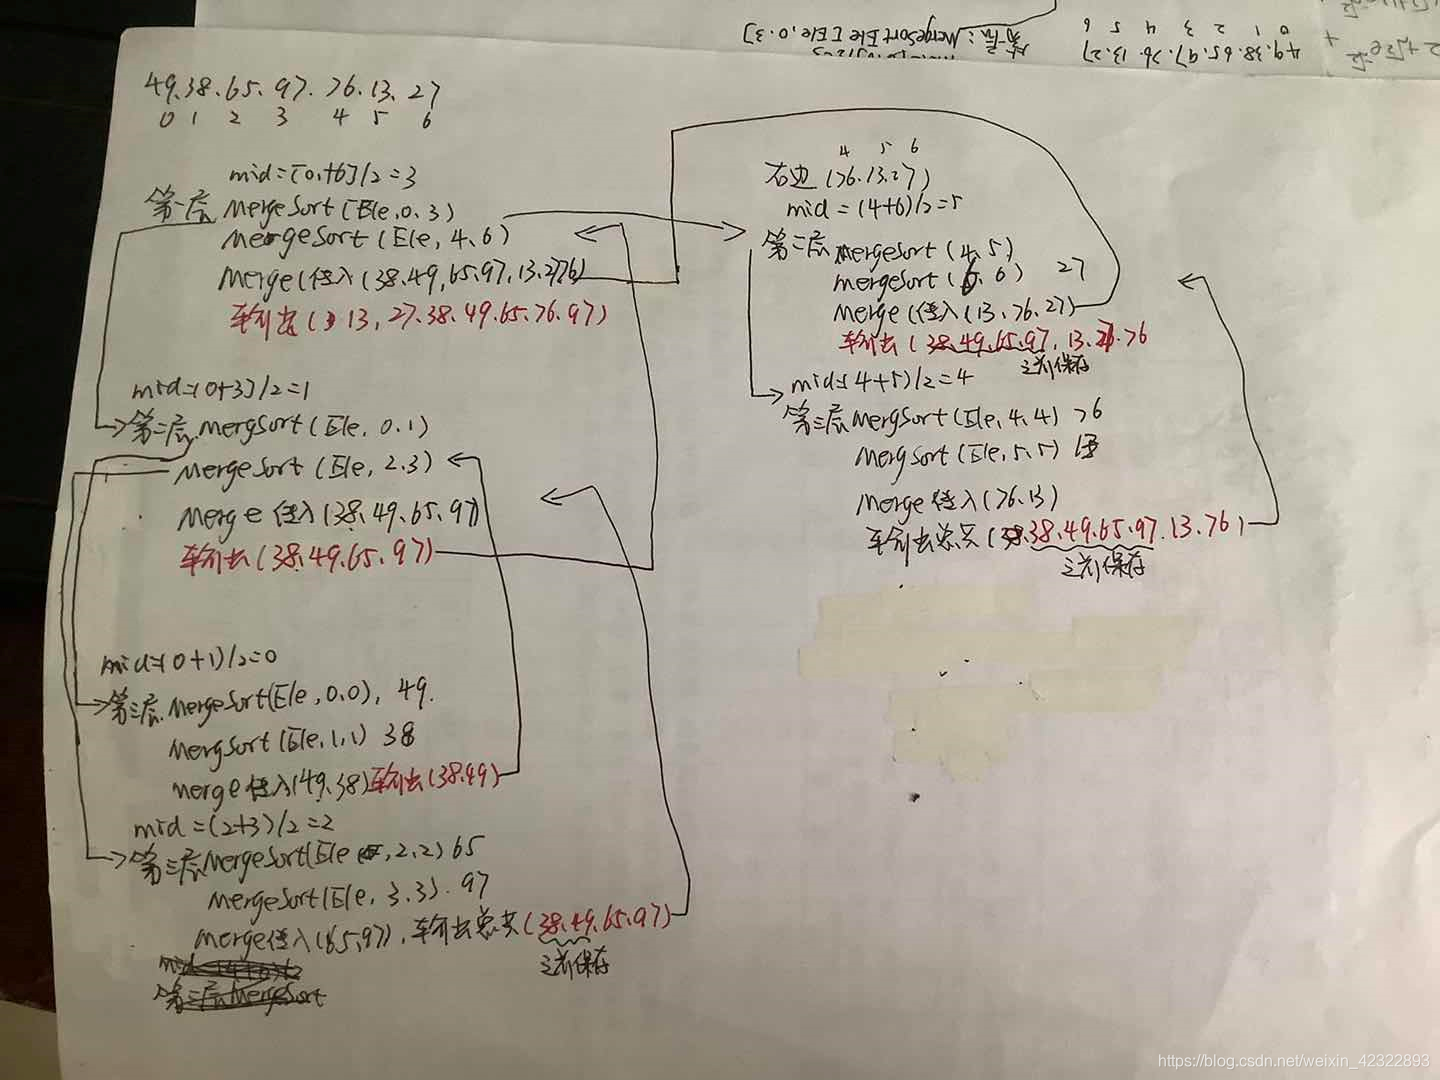 49.38.65.97.76.13.27
0 1 2 3 4 5 6
mid=[0+6]/2=3
第一层 MergeSort(Ele,0.3)
MergeSort(Ele,4.6)
Merge(传入(38.49,65.97,13.27.76)
输出(13,27.38.49.65.76.97)
mid=(0+3)/2=1
第二层.MergSort(Ele,0.1)
MergeSort(Ele,2.3)
Merge传入(38.49.65.97)
输出(38.49.65.97)
mid=(0+1)/2=0
第三层.MergeSort(Ele,0.0),49.
MergSort(Ele,1,1)38
merge传入(49.38)输出(38.49)
mid=(2+3)/2=2
第三层MergeSort(Ele,2,2)65
MergeSort(Ele,3.3).97
Merge传入(65,97),输出总共(38.49.65.97)
之前保存
mid=(4+6)/2
第二层MergeSort
4 5 6
右边(76.13.27)
mid=(4+6)/2=5
第二层MergeSort(4,5)
MergeSort(6.6) 27
Merge(传入(13,76.27)
输出(38.49.65.97,13.27.76
之前保存
mid=(4+5)/2=4
第三层MergSort(Ele,4,4)76
MergSort(Ele,5,5)13
Merge传入(76.13)
输出总共(38.49.65.97.13.76)
之前保存
MergeSort Ele[Ele,0.3]
49.38.65.97.76.13.27
0 1 2 3 4 5 6
https://blog.csdn.net/weixin_42322893